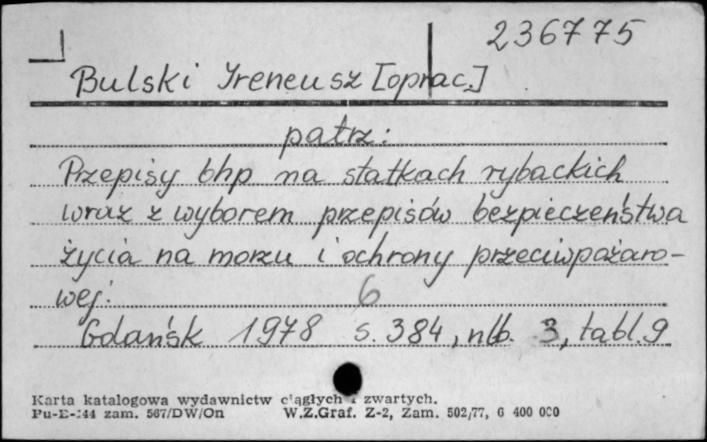 236775
Bulski Ireneusz [oprac.]
patrz:
Przepisy bhp na statkach rybackich
wraz z wyborem przepisów bezpieczeństwa
życia na morzu i ochrony przeciwpożaro-
wej.
6
Gdańsk 1978 s. 384, nlb. 3, tabl. 9
Karta katalogowa wydawnictw ciągłych i zwartych.
Pu-E-144 zam. 567/DW/On W.Z.Graf. Z-2, Zam. 502/77, 6 400 000